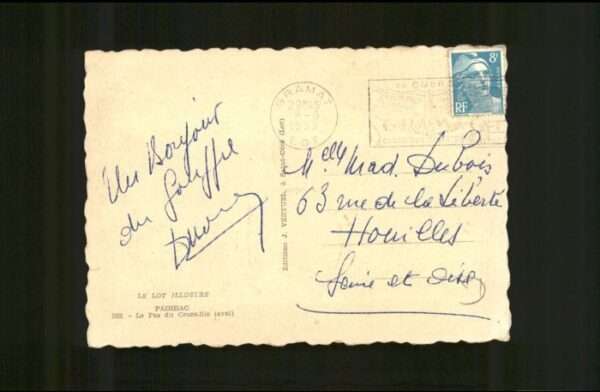 Un Bonjour
du Gouffre
LE LOT ILLUSTRÉ
PADIRAC
Le Pas du Crocodile (aval)
Editions J. VERTUEL, à Saint-Céré (Lot)
GRAMAT
LOT
8F
RF
Melle Mad. Dubois
63 rue de la Liberté
Houilles
Seine et Oise